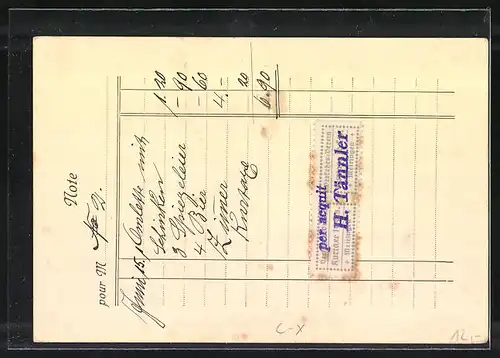 Note
pour M 2.
15. Omlette mit
Schinken 1.20
3 Spiegeleier -.90
4 Bier -.60
Zimmer 4.-
Kurtaxe 20
6.90
per acquit
H. Tännler
Kurtaxe
+ Meiringen +
C-X
12,-